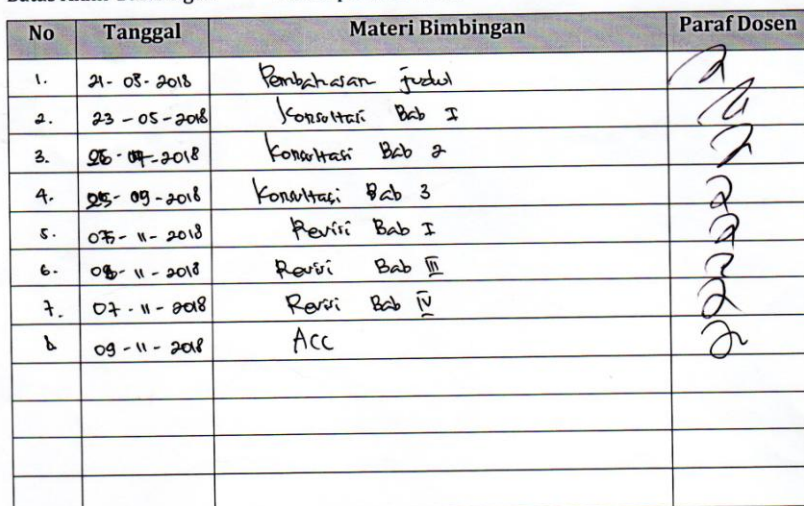 No Tanggal Materi Bimbingan Paraf Dosen
1. 21-03-2018 Pembahasan judul
2. 23-05-2018 Konsultasi Bab I
3. 2018 Konsultasi Bab 2
4. 09-2018 Konsultasi Bab 3
5. 11-2018 Revisi Bab I
6. 11-2018 Revisi Bab III
7. 07-11-2018 Revisi Bab IV
8 09-11-2018 ACC